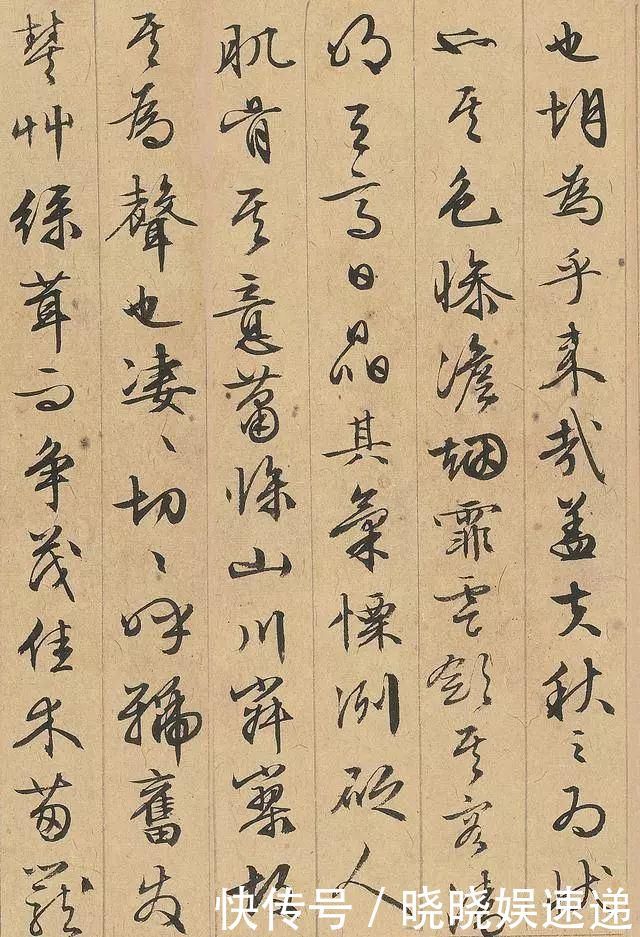 也胡為乎来哉盖夫秋之為状
也其色惨澹烟霏雲斂其容清
明天高日晶其氣慄冽砭人
肌骨其意蕭條山川寂寥故
其為聲也凄〻切〻呼號奮发
草綠茸而争茂佳木葱蘢
快传号 / 晓晓娱速递